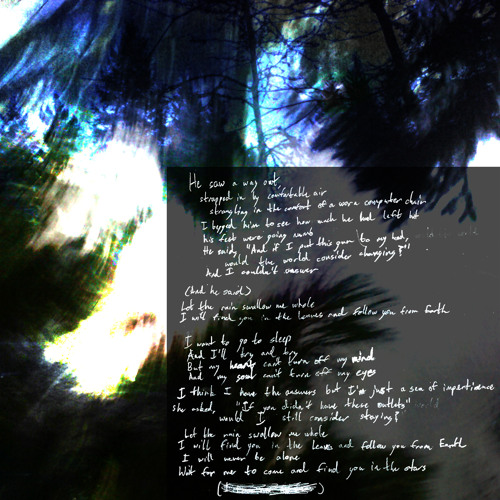 He saw a way out,
strapped in by comfortable air
struggling in the comfort of a worn computer chair
I begged him to see how much he had left but
his feet were going numb
He said, "And if I put this gun to my head,
would the world consider changing?"
And I couldn't answer
(And he said)
Let the rain swallow me whole
I will find you in the leaves and follow you from Earth
I want to go to sleep
And I'll try and try
But my heart can't turn off my mind
And my soul can't turn off my eyes
I think I have the answers but I'm just a sea of impertinence
She asked, "If you didn't have these outlets
would I still consider staying?
Let the rain swallow me whole
I will find you in the leaves and follow you from Earth
I will never be alone
Wait for me to come and find you in the stars